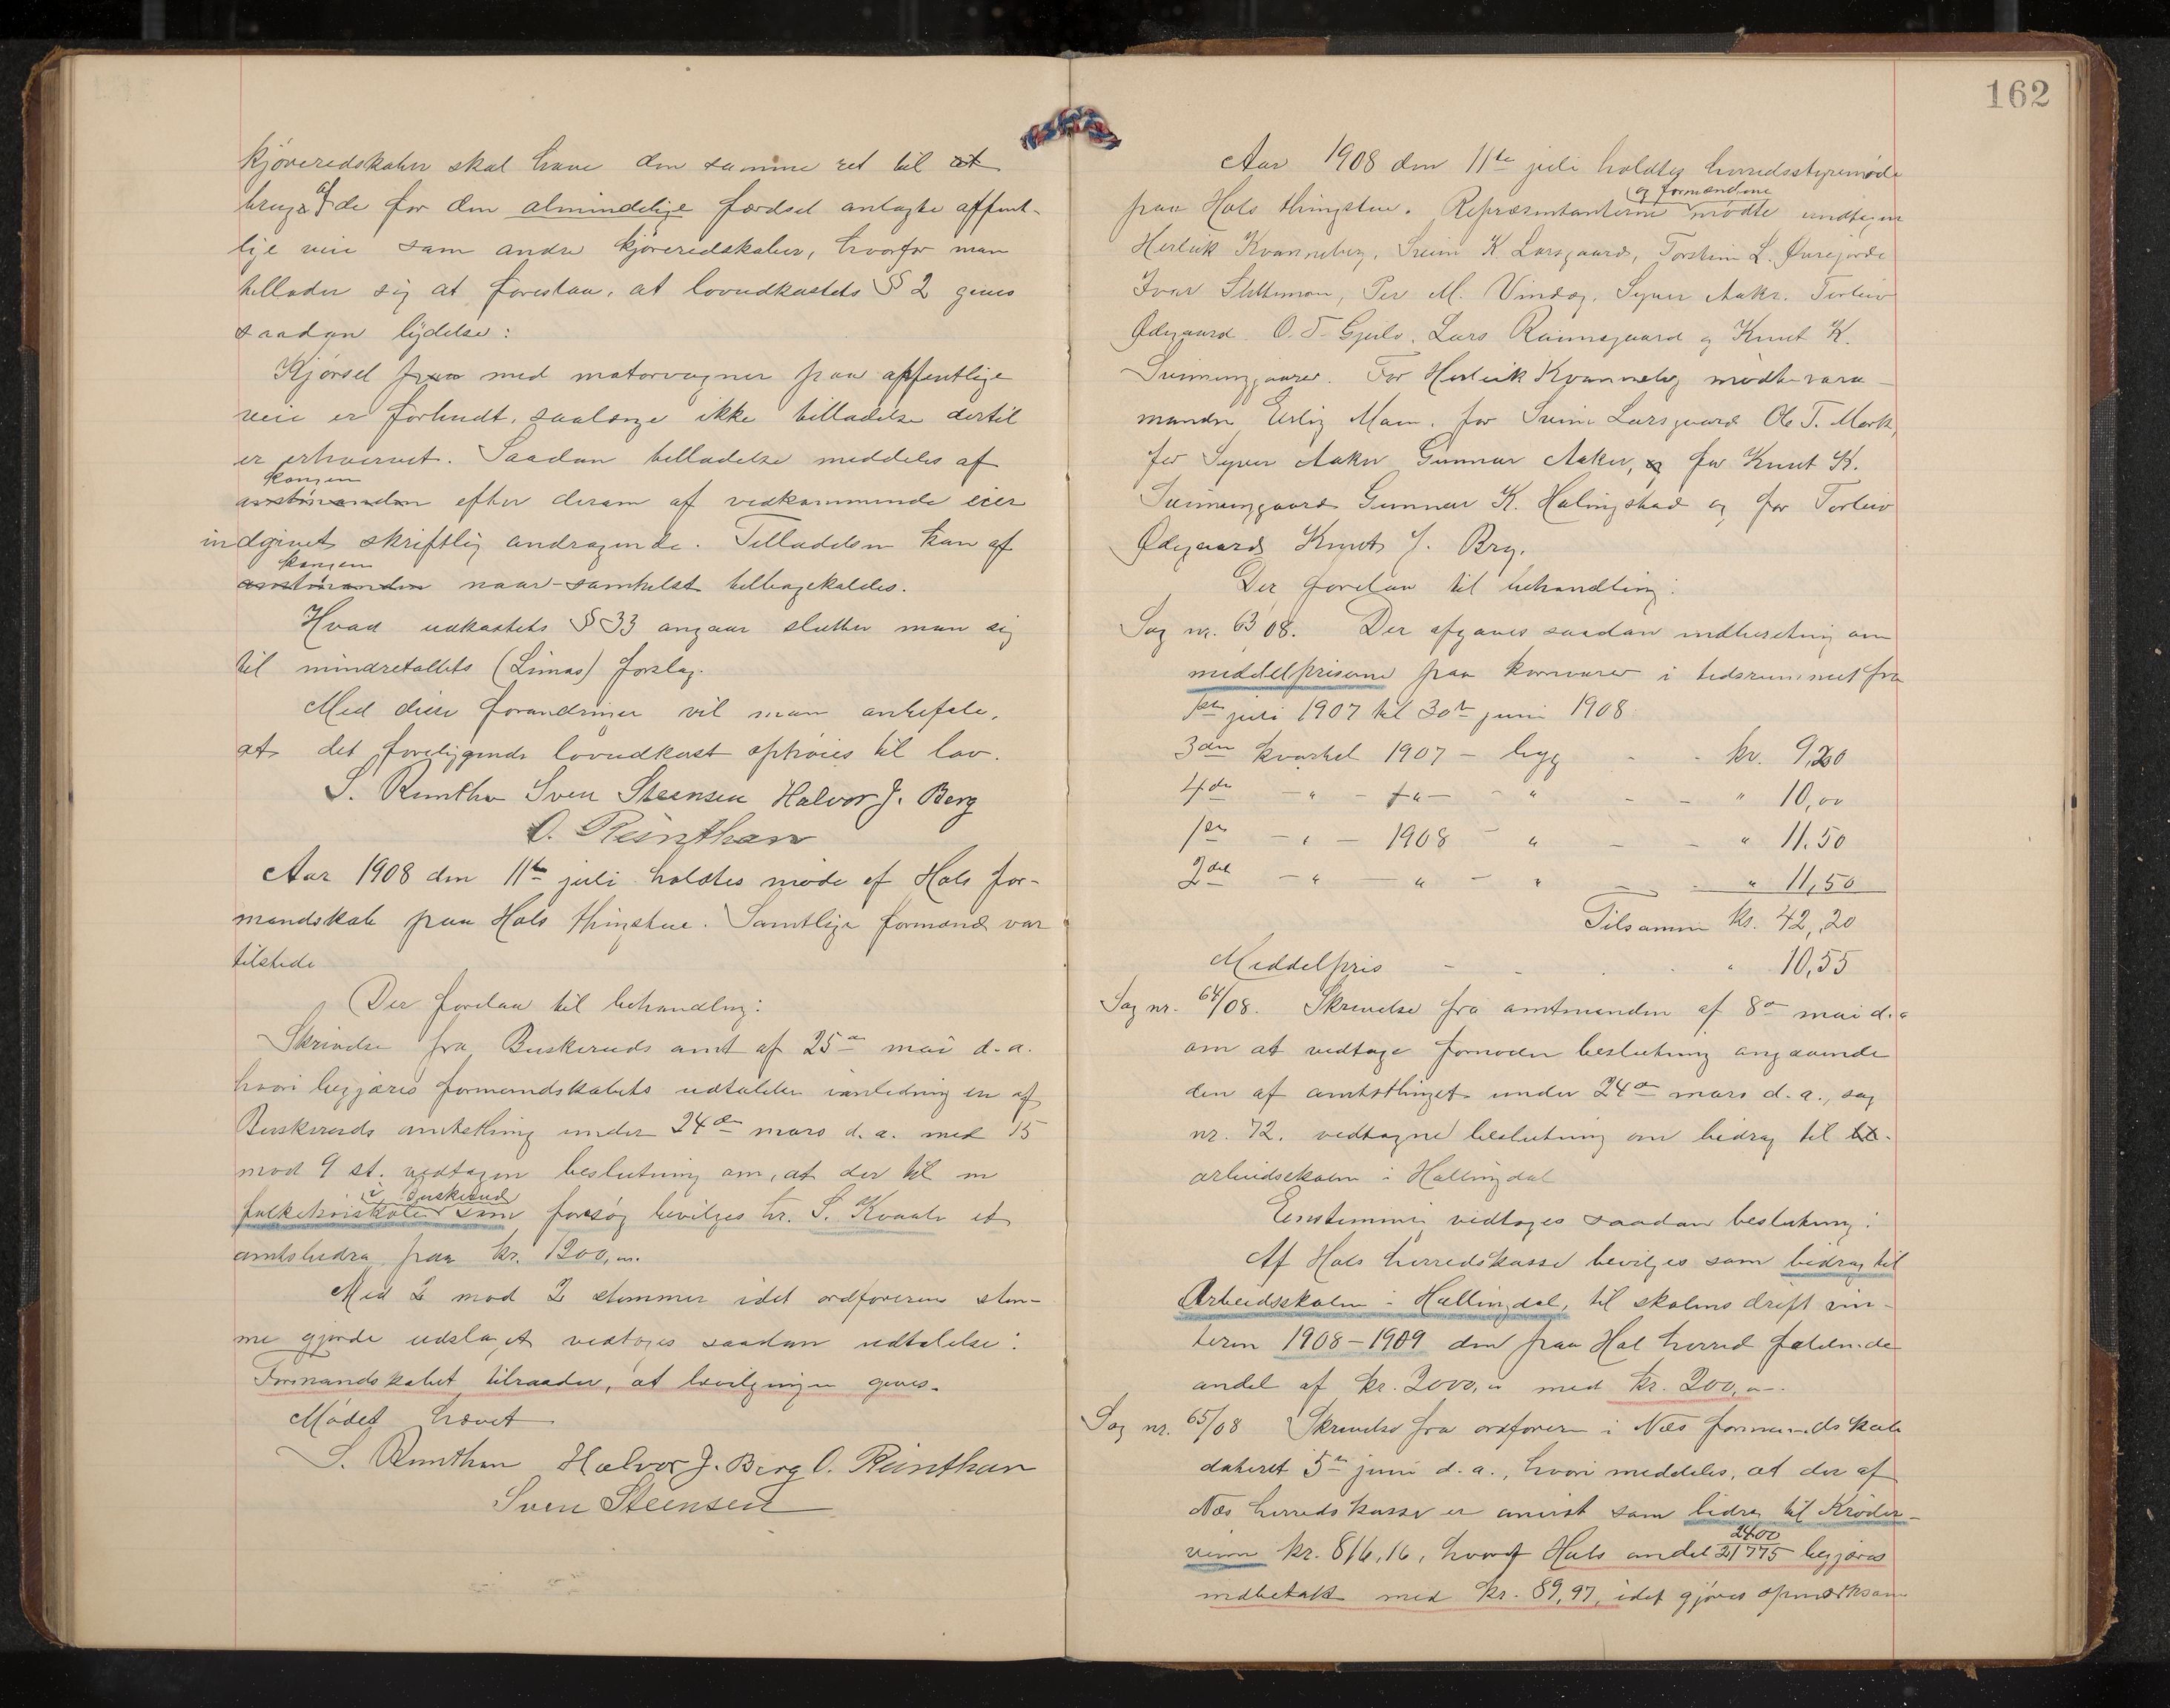 kjøreredskaber skal have den samme ret til at
bruge af de for den almindelige færdsel anlagte offent-
lige veie som andre kjøreredskaber, hvorfor man
tillader sig at foreslaa, at lovudkastets § 2 gives
saadan lydelse:
Kjørsel paa med motorvogner paa offentlige
veie er forbudt, saalænge ikke tilladelse dertil
er erhvervet. Saadan tilladelse meddeles af
kongen
amtmanden efter derom af vedkommende eier
indgivet skriftlig andragende. Tilladelsen kan af
kongen
amtmanden naar-somhelst tilbagekaldes.
Hvad udkastets § 33 angaar slutter man sig
til mindretallets (Limas) forslag.
Med disse forandringer vil man anbefale,
at det foreliggende lovudkast ophøies til lov.
S. Sven Steensen Halvor J. Berg
O. Reinthan
Aar 1908 den 11te juli holdtes møde af Hols for-
mandskab paa Hols thingstue. Samtlige formænd var
tilstede
Der forelaa til behandling:
Skrivelse fra Buskeruds amt af 25de mai d.a.
hvori begjæres formandskabets udtalelse i anledning en af
Buskeruds amtsthing under 24de mars d.a. med 15
mod 9 st. vedtagen beslutning om, at der til en
i Buskerud
folkehøiskole som forsøg bevilges hr. S. Kvaale et
amtsbidrag paa kr. 1200,00.
Med 2 mod 2 stemmer idet ordførerens stem-
me gjorde udslaget vedtoges saadan udtalelse:
Formandskabet tilraader, at bevilgningen gives.
Mødet hævet
S. Halvor J. Berg O. Reinthan
Sven Steensen
162
Aar 1908 den 11te juli holdtes herredsstyremøde
og formændene
paa Hols thingstue. Repræsentanterne mødte undtagen
Herleik Kvanneberg, Svein K. Larsgaard, Torstein L. Øvrejorde
Ivar Slettemoen, Per M. Vindeg, Syver Aaker, Torleiv
Ødegaard, O. T. Gjeilo, Lars Raunsgaard og Knut K.
Sveinunggaard. For Herleik Kvanneberg mødte vara-
manden Erling Moen, for Svein Larsgaard Ole T. Mork,
for Syver Aaker Gunnar Aaker, og for Knut K.
Sveinunggaard Gunnar K. Halingstad og for Torleiv
Ødegaard Knut J. Bry.
Der forelaa til behandling:
Sag nr. 63/08. Der afgaves saadan indberetning om
middelpriserne paa kornvarer i tidsrummet fra
1ste juli 1907 til 30te juni 1908
3die kvartal 1907 – bygg - - kr. 9,20
4de - " - - " - - " - - " 10,00
1ste - " - 1908 - " - - " 11.50
2det - " - " - " - - " 11,50
Tilsammen kr. 42,20
Middelpris - - - - " 10,55
Sag nr. 64/08. Skrivelse fra amtmanden af 8de mai d.a
om at vedtage fornøden beslutning angaaende
den af amtsthinget under 24de mars d.a., sag
nr. 72. vedtagne beslutning om bidrag til
arbeidsskolen i Hallingdal
Eenstemmig vedtoges saadan beslutning:
Af Hols herredskasse bevilges som bidrag til
Arbeidsskolen i Hallingdal, til skolens drift vin-
teren 1908–1909 den paa Hol herred faldende
andel af kr. 2000,00 med kr. 200,00.
Sag nr. 65/08 Skrivelse fra ordføreren i Næs formandskab
dateret 5te juni d.a., hvori meddeles, at der af
Næs herredskasse er anvist som bidrag til Krøder-
veien kr. 816,16, hvoraf Hols andel 2400/21775 begjæres
indbetalt med kr. 89,97, idet gjøres opmærksom